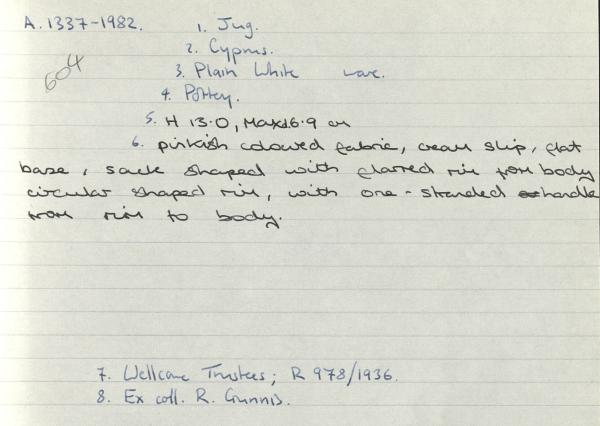 A.1337-1982. 1. Jug.
2. Cyprus.
604
3. Plain White ware.
4. Pottery.
5. H 13.0, Maxd 6.9 cm
6. pinkish coloured fabric, cream slip, flat
base, sack shaped with flarred rim from body
circular shaped rim, with one-stranded handle
from rim to body.
7. Wellcome Trustees; R 978/1936.
8. Ex coll. R. Gunnis.